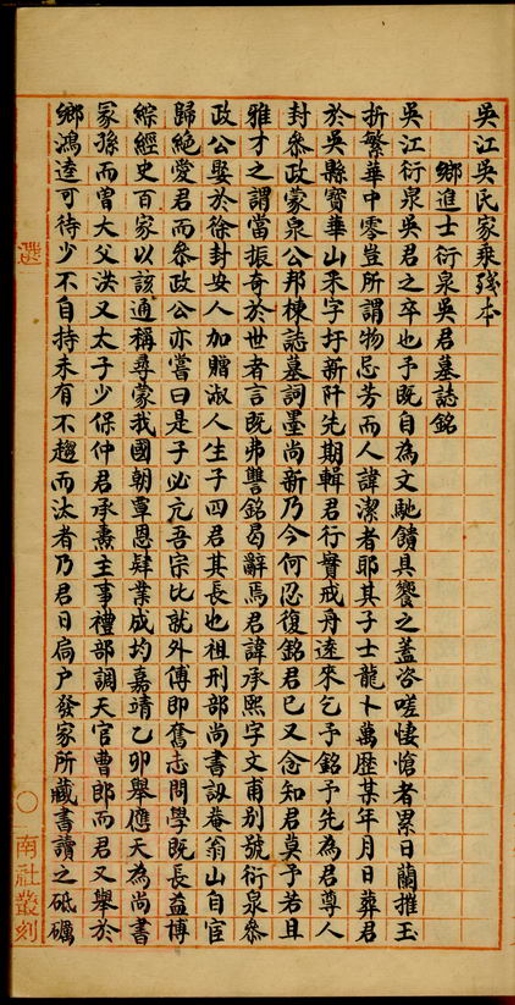 吳江吳氏家乘殘本
鄉進士衍泉吳君墓誌銘
吳江衍泉吳君之卒也予既自為文馳饋具饗之蓋咨嗟悽愴者累日蘭摧玉
折繁華中零豈所謂物忌芳而人諱潔者耶其子士龍卜萬歷某年月日葬君
於吳縣寶華山釆字圩新阡先期輯君行實戒舟逵來乞予銘予先為君尊人
封叅政蒙泉公邦棟誌墓詞墨尚新乃今何忍復銘君已又念知君莫予若且
雅才之謂當振奇於世者言既弗讐銘曷辭焉君諱承熙字文甫別號衍泉叅
政公娶於徐封安人加贈淑人生子四君其長也祖刑部尚書訒菴翁山自宦
歸絶愛君而叅政公亦嘗曰是子必亢吾宗比就外傅即奮志問學既長益博
綜經史百家以該通稱尋蒙我國朝覃恩肄業成均嘉靖乙卯舉應天為尚書
冡孫而曾大父洪又太子少保仲君承燾主事禮部調天官曹郎而君又舉於
鄉鴻逵可待少不自持未有不趨而汰者乃君日扃户發家所藏書讀之砥礪
選
○
南社叢刻